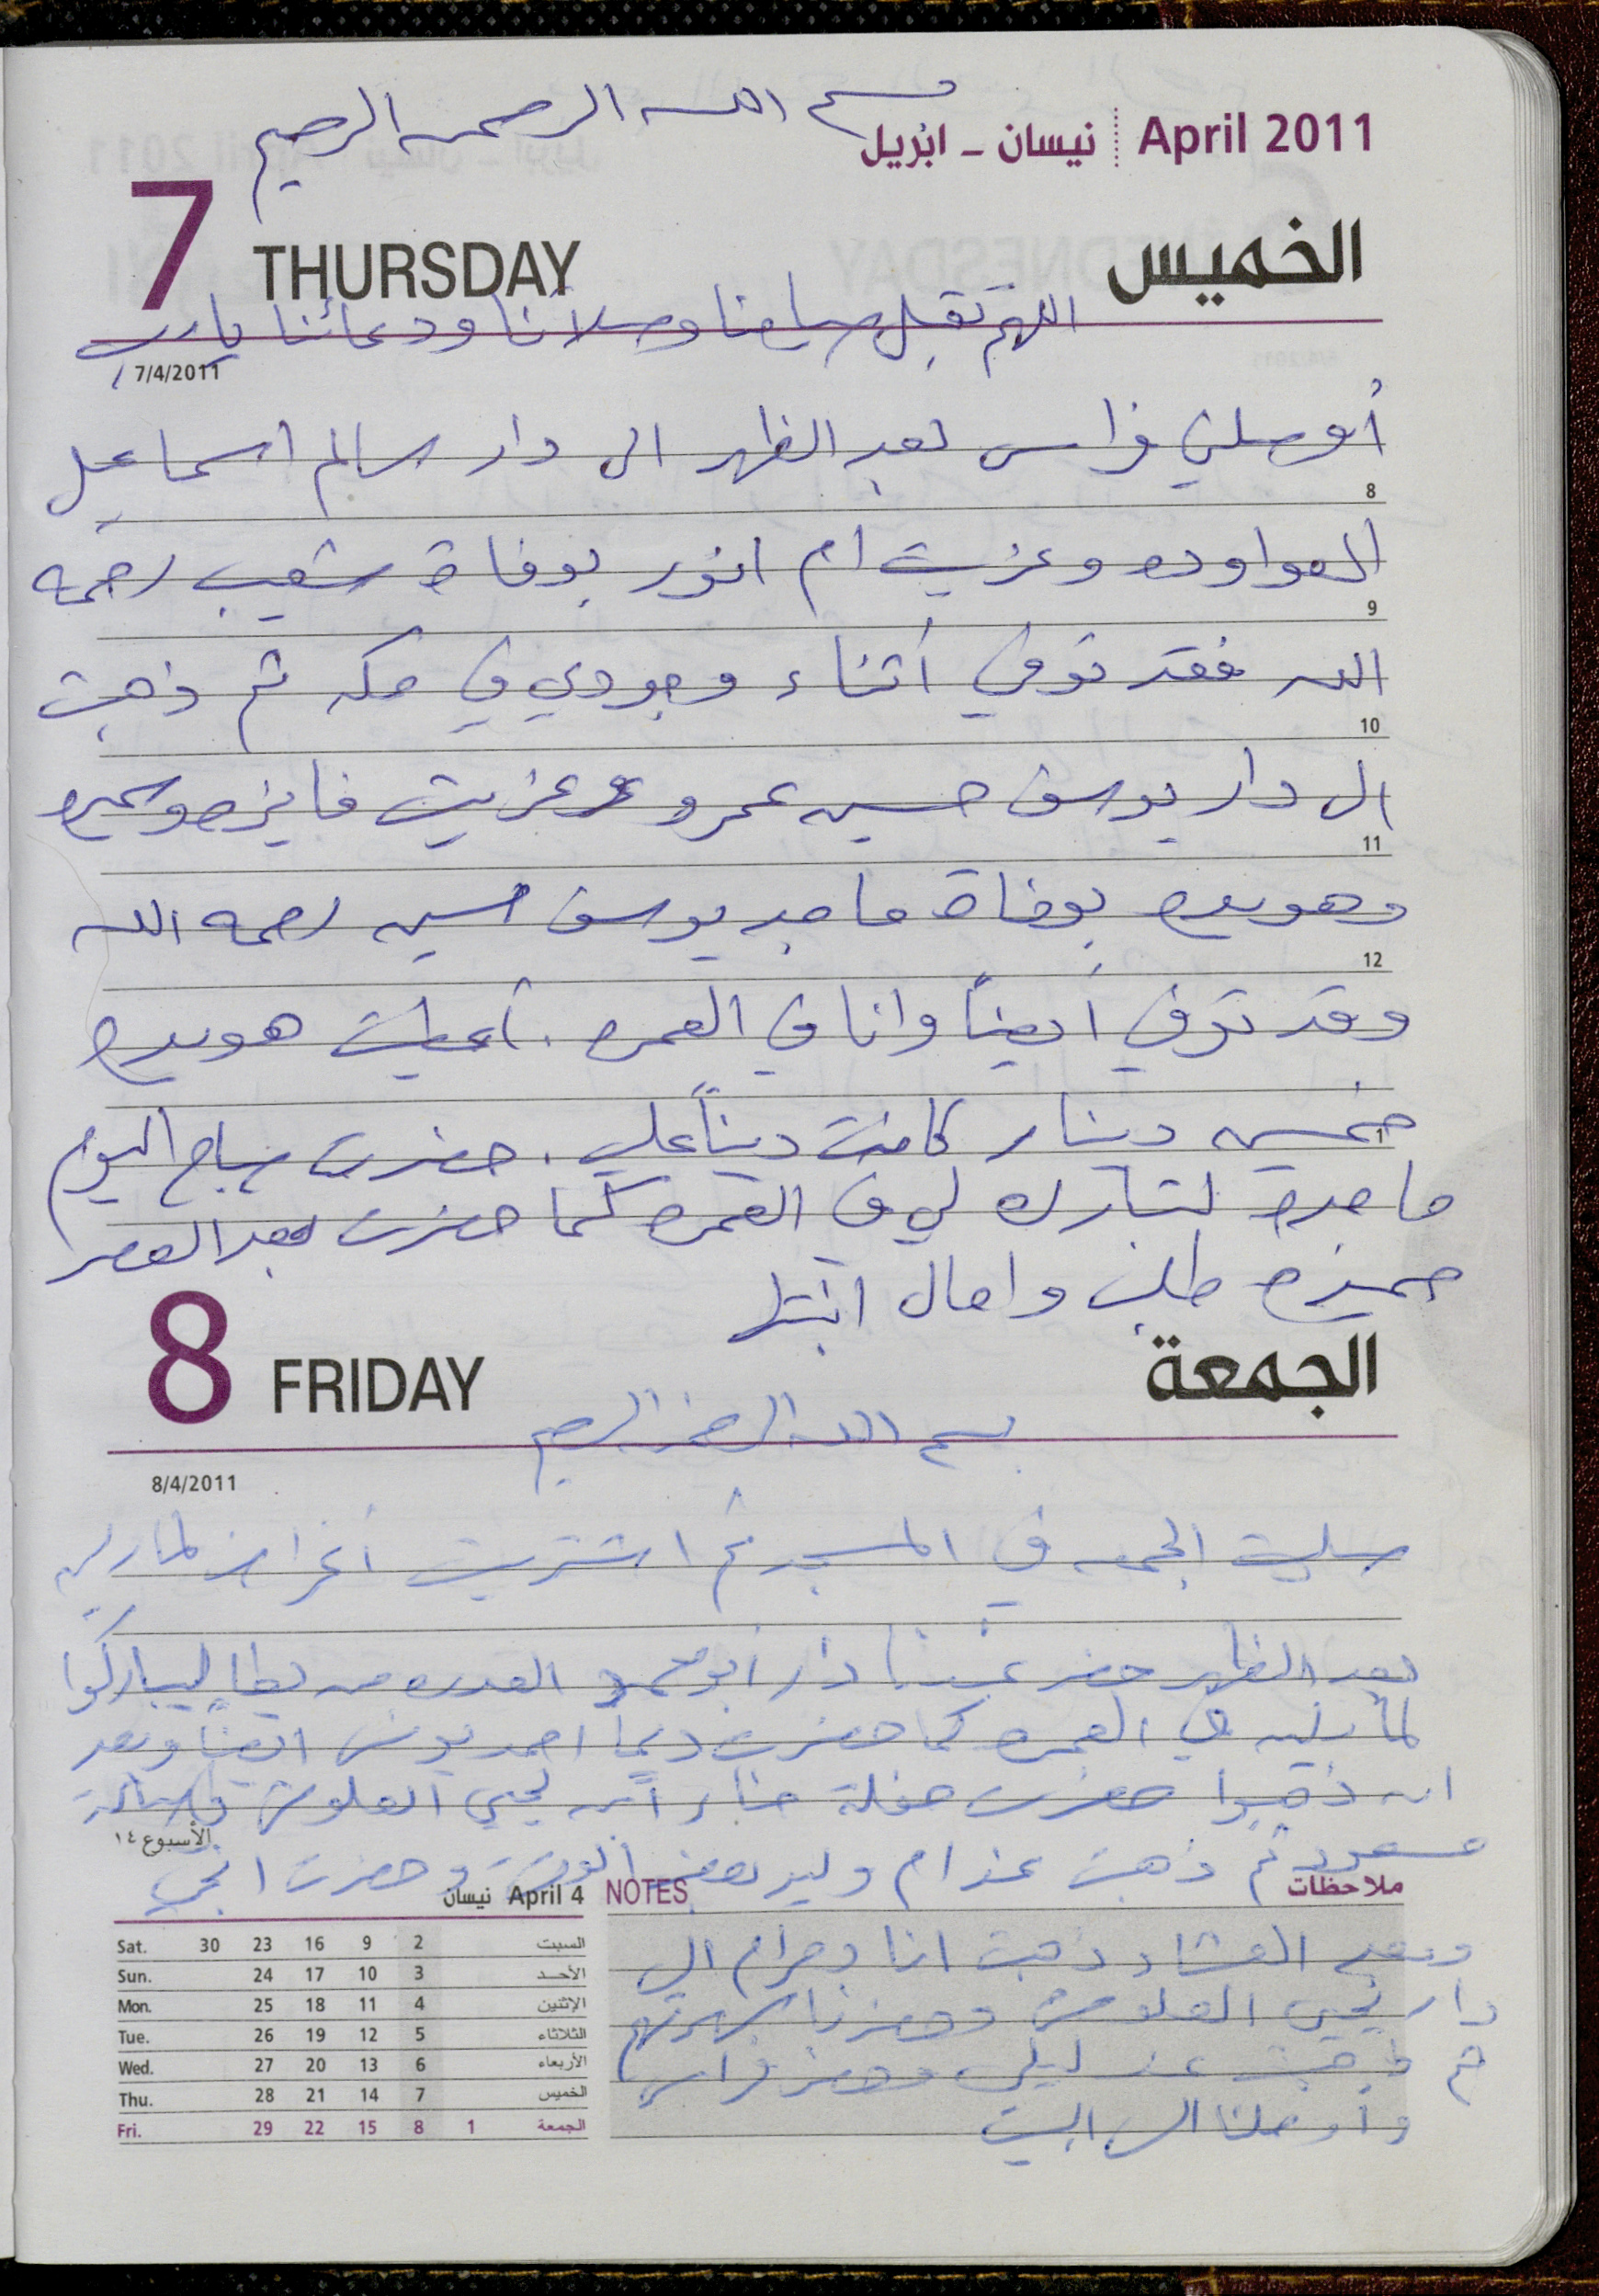 بسم الله الرحمن الرحيم
April 2011 نيسان - ابريل
7 THURSDAY الخميس
اللهم تقبل صيامنا وصلاتنا ودعائنا يارب
7/4/2011
أوصلني فراس بعد الظهر الى دار سالم اسماعيل
8
العواوده وعزيت ام انور بوفاة شعيب رحمه
9
الله فقد توفي أثناء وجودي في مكه ثم ذهبت
10
الى دار يوسف حسين عمرو وعزيت فايزه وسميره
11
وهويده بوفاة ماجد يوسف حسين رحمه الله
12
وقد توفي أيضاً وانا في العمره . أعطيت هويده
1
خمسين دينار كانت ديناً علي . حضرت صباح اليوم
ماجده لتبارك لي في العمره كما حضرت بعد العصر
حميزه طلب وامال ابنتها
8 FRIDAY الجمعة
بسم الله الرحمن الرحيم
8/4/2011
صليت الجمعه في المسجد ثم اشتريت أغراض
بعد الظهر حضر عندنا دار أبو محمود من يطا ليباركوا
في العمره كما حضرت ديما احمد يونس ايضاً وبعد
ان ذهبوا حضرت حفلة حناء ابن يحيى
الأسبوع ١٤
مسعود ثم ذهبت عند ام وليد بعض الوقت وحضرت
ملاحظات NOTES
وبعد العشاء ذهبت انا ومرام الى
دار يحيى وحضرنا سهرتهم
ثم ذهبت عند ليلى وحضر فراس
وأوصلنا الى البيت
April 4 نيسان
Sat. 30 23 16 9 2 السبت
Sun. 24 17 10 3 الأحد
Mon. 25 18 11 4 الإثنين
Tue. 26 19 12 5 الثلاثاء
Wed. 27 20 13 6 الأربعاء
Thu. 28 21 14 7 الخميس
Fri. 29 22 15 8 1 الجمعة